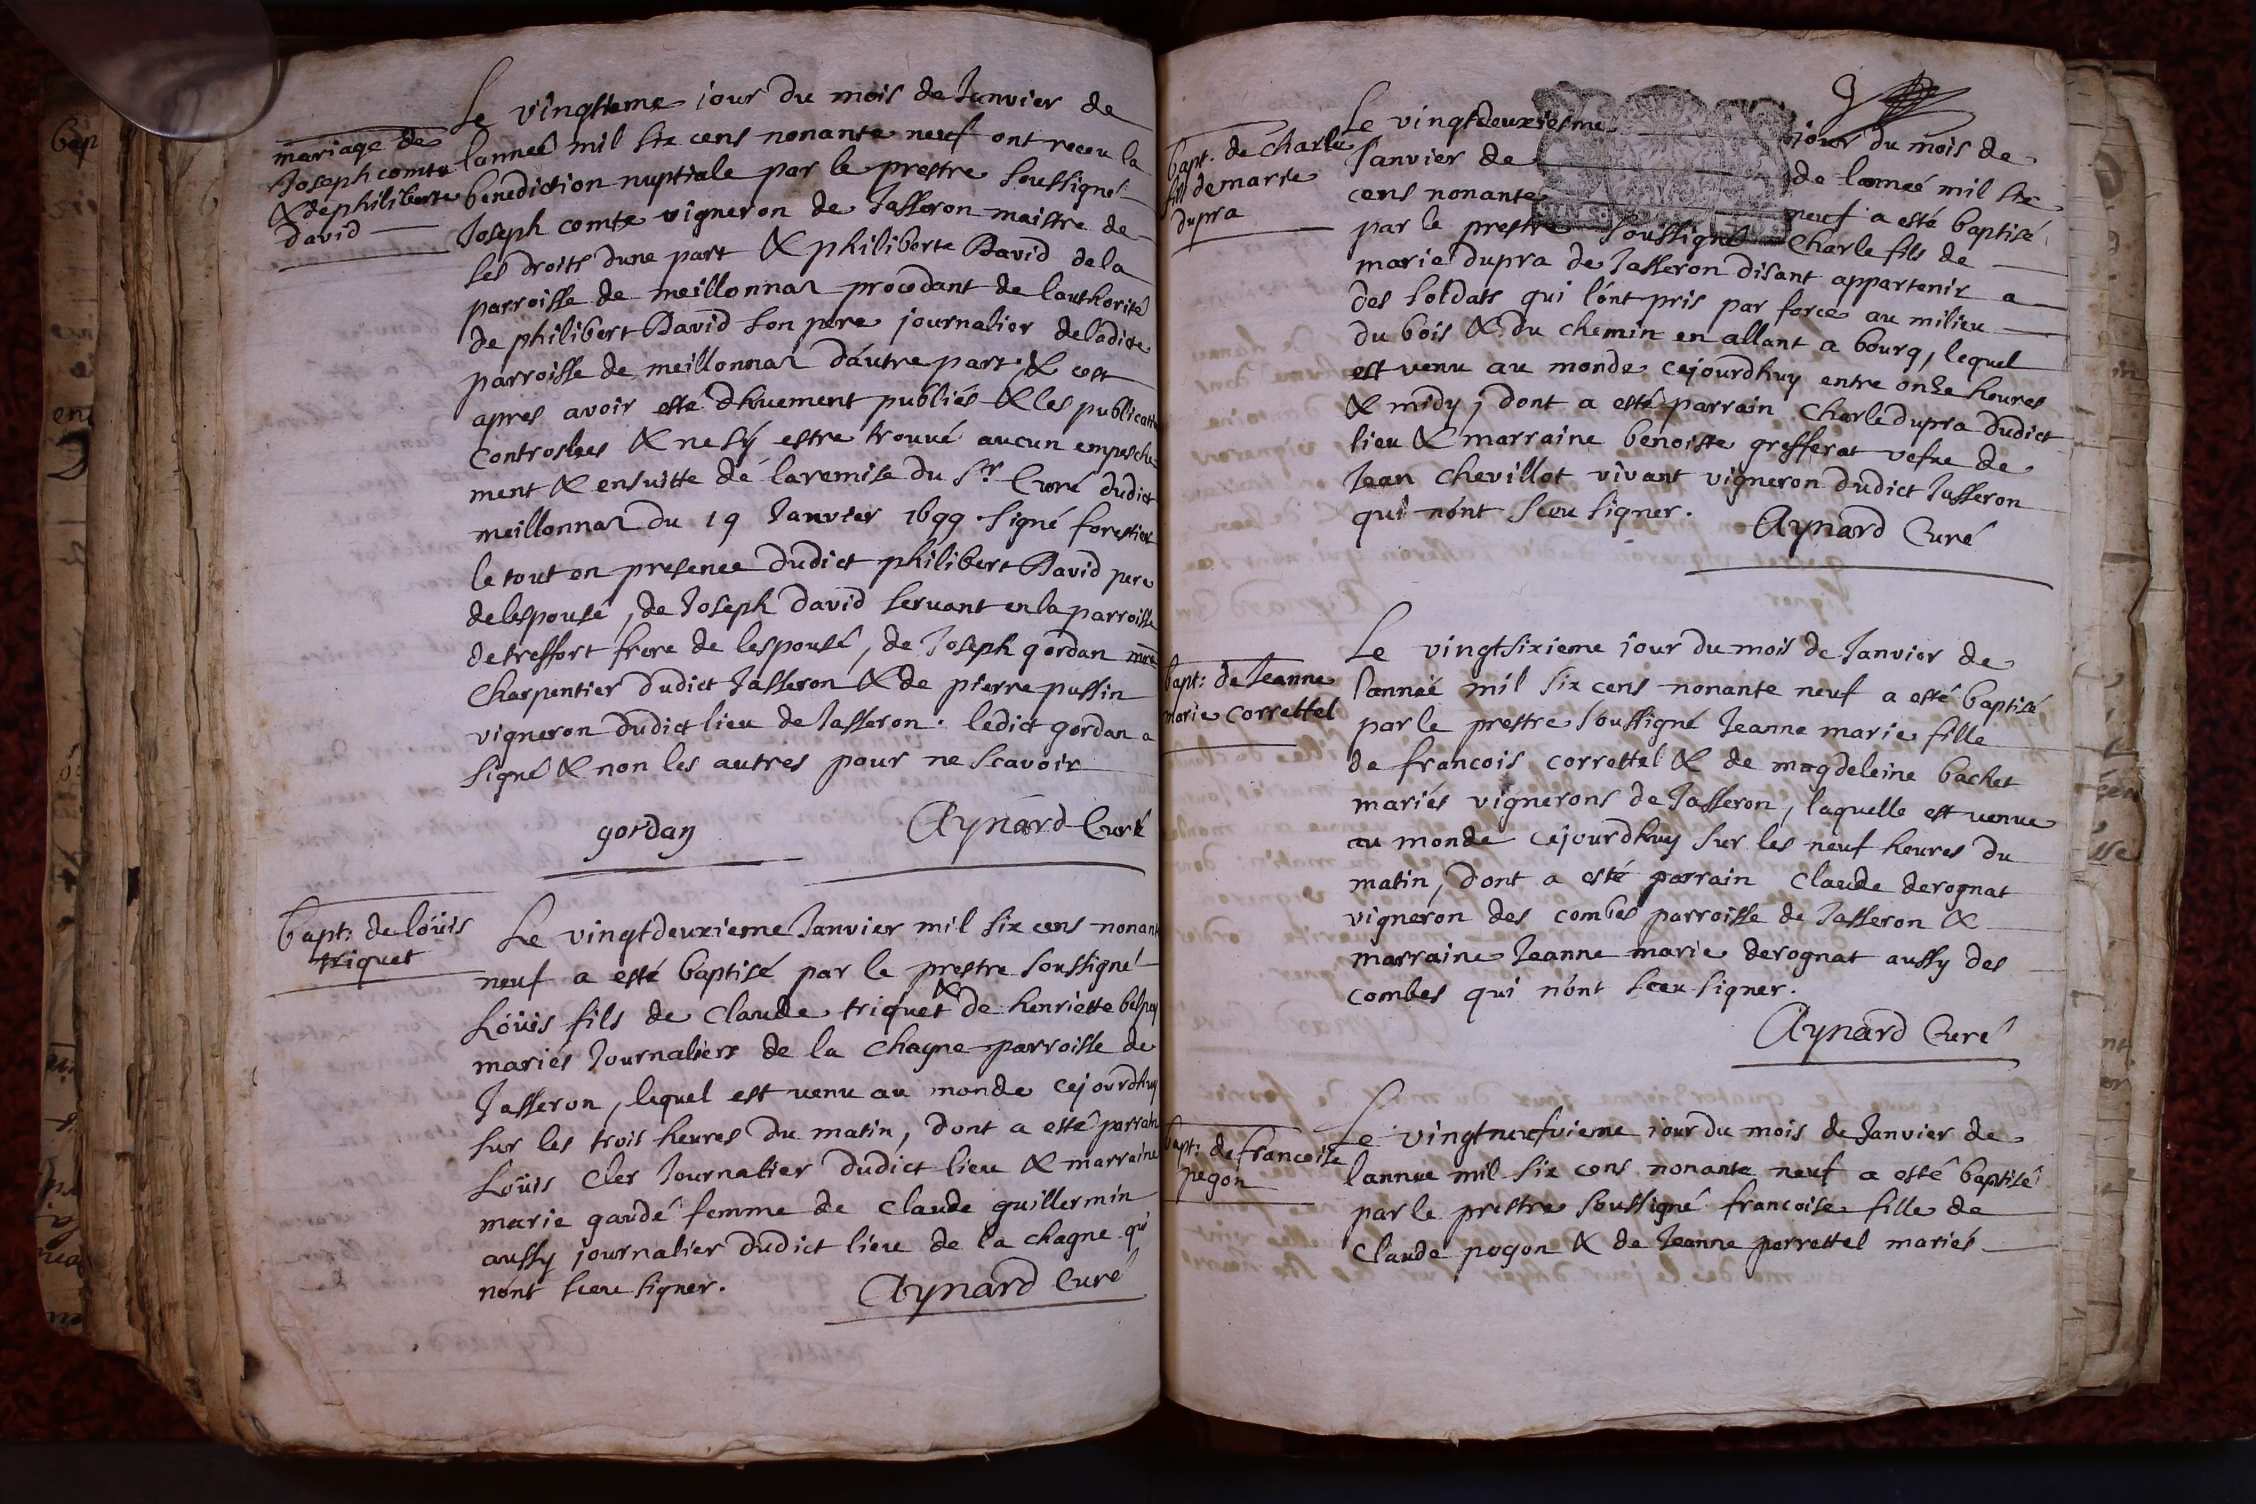 mariage de
Joseph comte
& de philiberte
david
Le vingtieme jour du mois de Janvier de
lanneé mil six cens nonante neuf ont receu la
benediction nuptiale par le prestre soussigné
Joseph comte vigneron de Jasseron maistre de
ses droits dune part & philiberte David de la
parroisse de meillonnaz procedant de lauthorité
de philibert David son pere journalier deladicte
parroisse de meillonnaz dáutre part, & cest
apres avoir esté dhuement publiés & les publicatio
controslees & ne sÿ estre trouvé aucun empesche
ment & ensuitte dé la remise du Sr Curé dudict
meillonnaz du 19 Janvier 1699 signé forestier
le tout en presence dudict philibert David pere
delespousé, de Joseph david servant en la parroisse
de treffort frere de lespousé, de Joseph gordan mre
Charpentier dudict Jasseron & de pierre pussin
vigneron dudict lieu de Jasseron. ledict gordan a
signé & non les autres pour ne scavoir
gordan Aynard Curé
bapt: de loüis
triquet
Le vingtdeuxieme Janvier mil six cens nonant
neuf a esté baptisé par le prestre soussigné
Loüis fils de Claude triquet & de henriette
mariés Journaliers de la Chagne parroisse de
Jasseron, lequel est venu au monde cejourdhuy
sur les trois heures du matin, dont a esté parrain
Loüis Cler Journalier dudict lieu & marraine
marie gaudé femme de Claude guillermin
aussy journalier dudict lieu de la chagne qui
nónt sceu signer. Aynard Curé
9
bapt. de Charle
fils de marie
dupra
Le vingtdeuxiesme jour du mois de
Janvier de de lanneé mil six
cens nonante neuf a esté baptisé
par le prestre soussigné Charle fils de
marie dupra de Jasseron disant appartenir a
des soldats qui lónt pris par force au milieu
du bois & du chemin en allant a bourg, lequel
est venu au monde cejourdhuy entre onze heures
& midy, dont a esté parrain Charle dupra dudict
lieu & marraine benoiste grefferat vefue de
Jean Chevillot vivant vigneron dudict Jasseron
qui nónt sceu signer. Aynard Curé
bapt: de Jeanne
marie correttel
Le vingtsixieme jour du mois de Janvier de
lanneé mil six cens nonante neuf a esté baptisé
par le prestre soussigné Jeanne marie fille
de francois correttel & de magdeleine bachet
mariés vignerons de Jasseron, laquelle est venue
au monde cejourdhuy sur les neuf heures du
matin, dont a esté parrain Claude derognat
vigneron des combes parroisse de Jasseron &
marraine Jeanne marie derognat aussy des
combes qui nónt sceu signer.
Aynard Curé
bapt: de francoise
pegon
Le vingtneufvieme jour du mois de Janvier de
lannee mil six cens nonante neuf a esté baptisé
par le prestre soussigné francoise fille de
Claude pogon & de Jeanne perrettel mariés